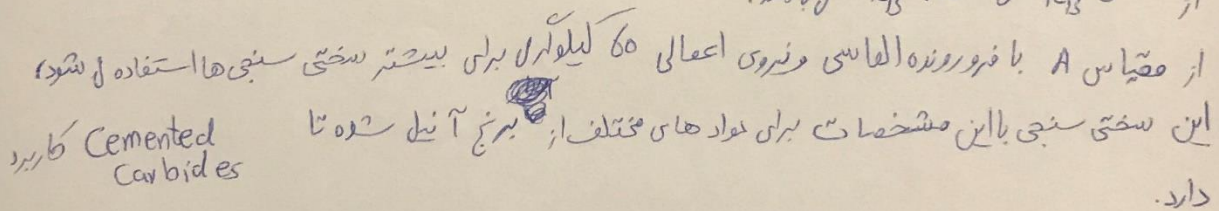 از مقیاس A با فرورونده الماسی و نیروی اعمالی 60 کیلوگرمی برای بیشتر سختی سنجی ها استفاده می شود،
این سختی سنجی با این مشخصات برای مواد های مختلف از برنج آنیل شده تا Cemented Carbides کاربرد
دارد.